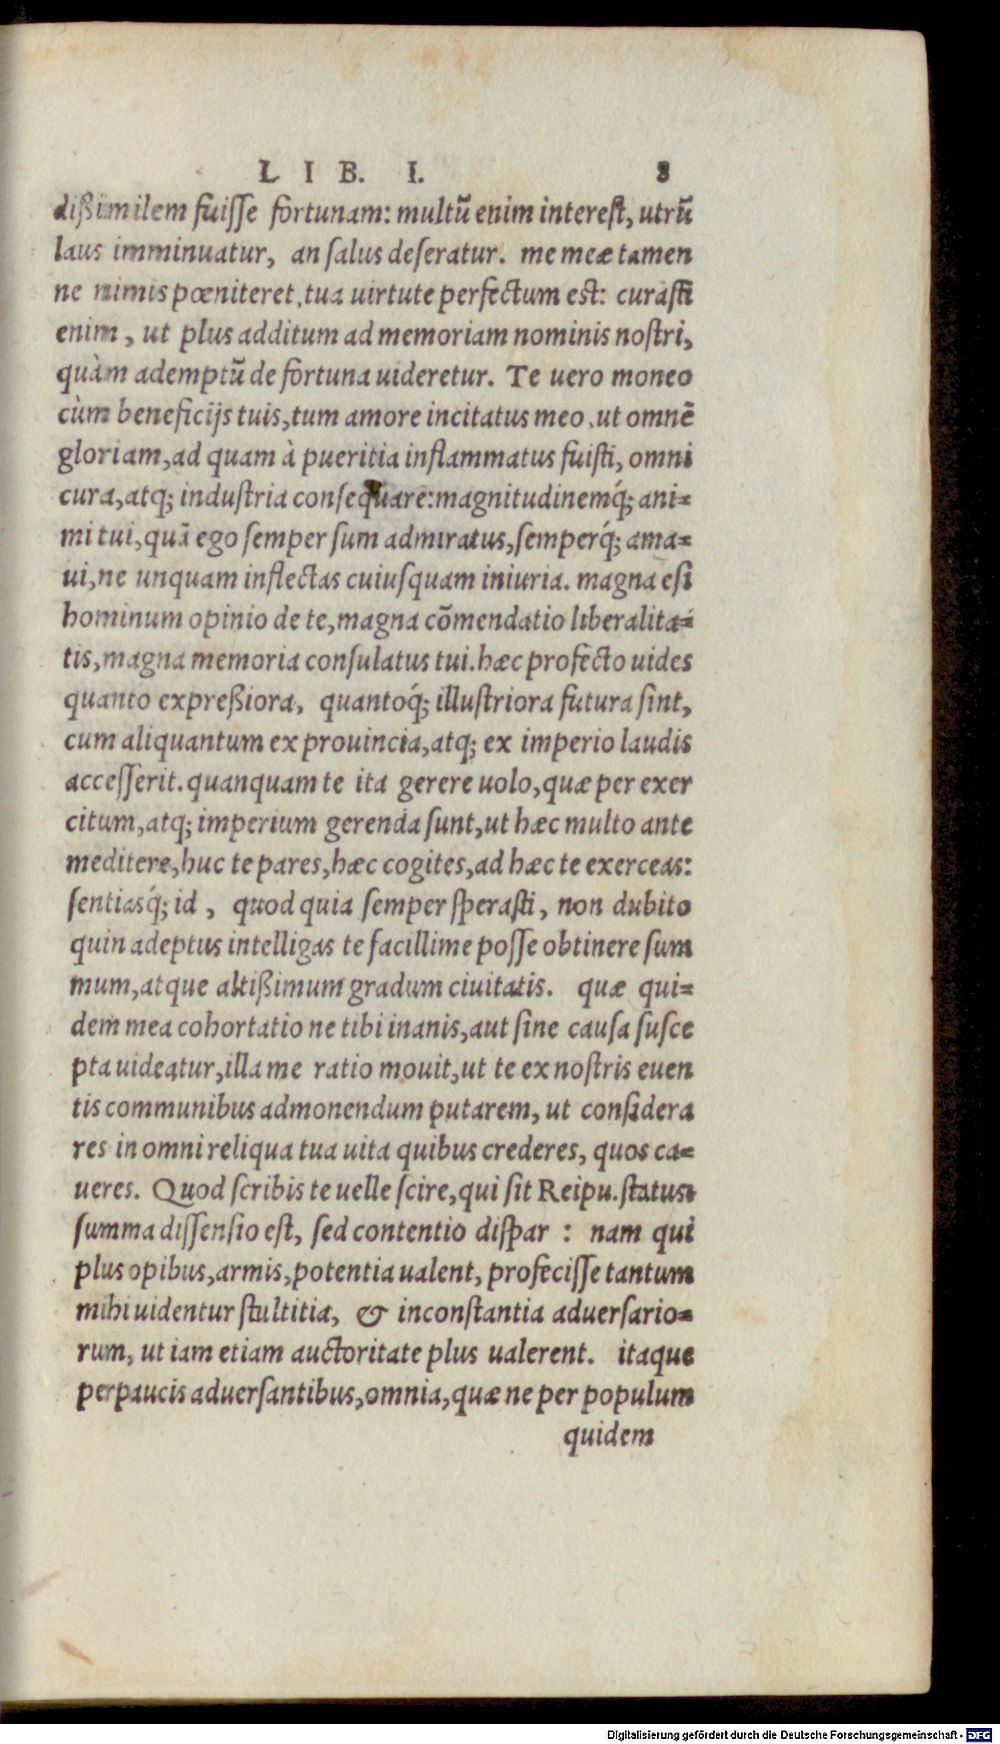 LIB. I. 8
dißimilem fuisse fortunam: multū enim interest, utrū
laus imminuatur, an salus deseratur. me meæ tamen
ne nimis pœniteret, tua uirtute perfectum est: curasti
enim, ut plus additum ad memoriam nominis nostri,
quàm ademptū de fortuna uideretur. Te uero moneo
cùm beneficijs tuis, tum amore incitatus meo, ut omnē
gloriam, ad quam à pueritia inflammatus fuisti, omni
cura, atq; industria consequare: magnitudinemq́; ani-
mi tui, quā ego semper sum admiratus, semperq́; ama-
ui, ne unquam inflectas cuiusquam iniuria. magna est
hominum opinio de te, magna cōmendatio liberalita-
tis, magna memoria consulatus tui. hæc profecto uides
quanto expreßiora, quantoq́; illustriora futura sint,
cum aliquantum ex prouincia, atq; ex imperio laudis
accesserit. quanquam te ita gerere uolo, quæ per exer
citum, atq; imperium gerenda sunt, ut hæc multo ante
meditere, huc te pares, hæc cogites, ad hæc te exerceas:
sentiasq́; id, quod quia semper sperasti, non dubito
quin adeptus intelligas te facillime posse obtinere sum
mum, atque altißimum gradum ciuitatis. quæ qui-
dem mea cohortatio ne tibi inanis, aut sine causa susce
pta uideatur, illa me ratio mouit, ut te ex nostris euen
tis communibus admonendum putarem, ut considera
res in omni reliqua tua uita quibus crederes, quos ca-
ueres. Quod scribis te uelle scire, qui sit Reipu. status:
summa dissensio est, sed contentio dispar: nam qui
plus opibus, armis, potentia ualent, profecisse tantum
mihi uidentur stultitia, & inconstantia aduersario-
rum, ut iam etiam auctoritate plus ualerent. itaque
perpaucis aduersantibus, omnia, quæ ne per populum
quidem
Digitalisierung gefördert durch die Deutsche Forschungsgemeinschaft - DFG